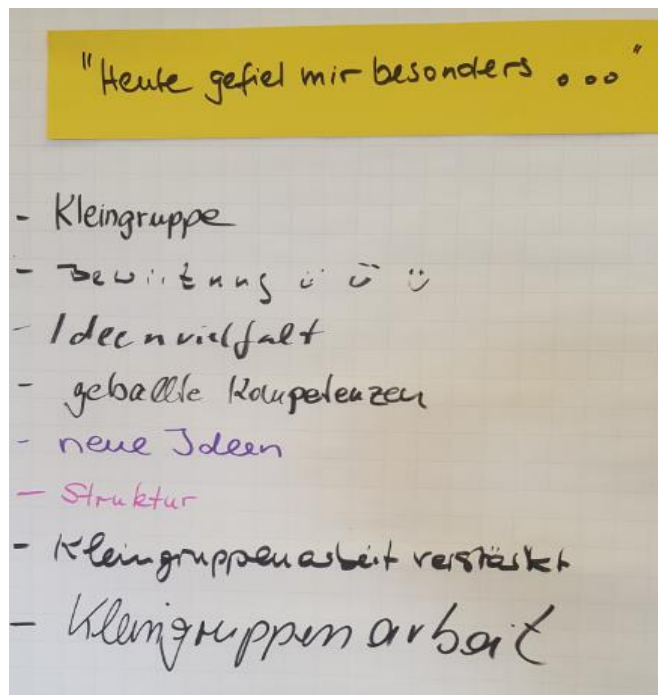 "Heute gefiel mir besonders ..."
- Kleingruppe
- Bewirtung ü ü ü
- Ideenvielfalt
- geballte Kompetenzen
- neue Ideen
- Struktur
- Kleingruppenarbeit verstärkt
- Kleingruppenarbeit